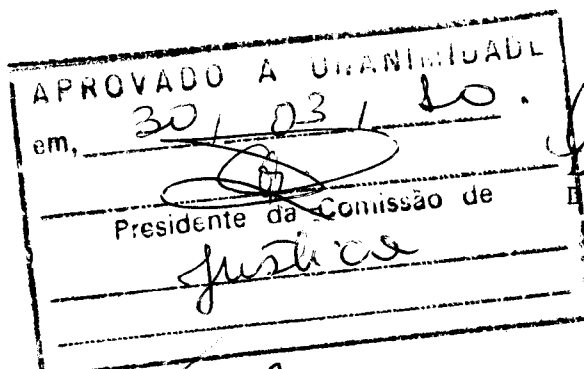 APROVADO A UNANIMIDADE
em, 30, 03, 10.
Presidente da Comissão de
Justiça